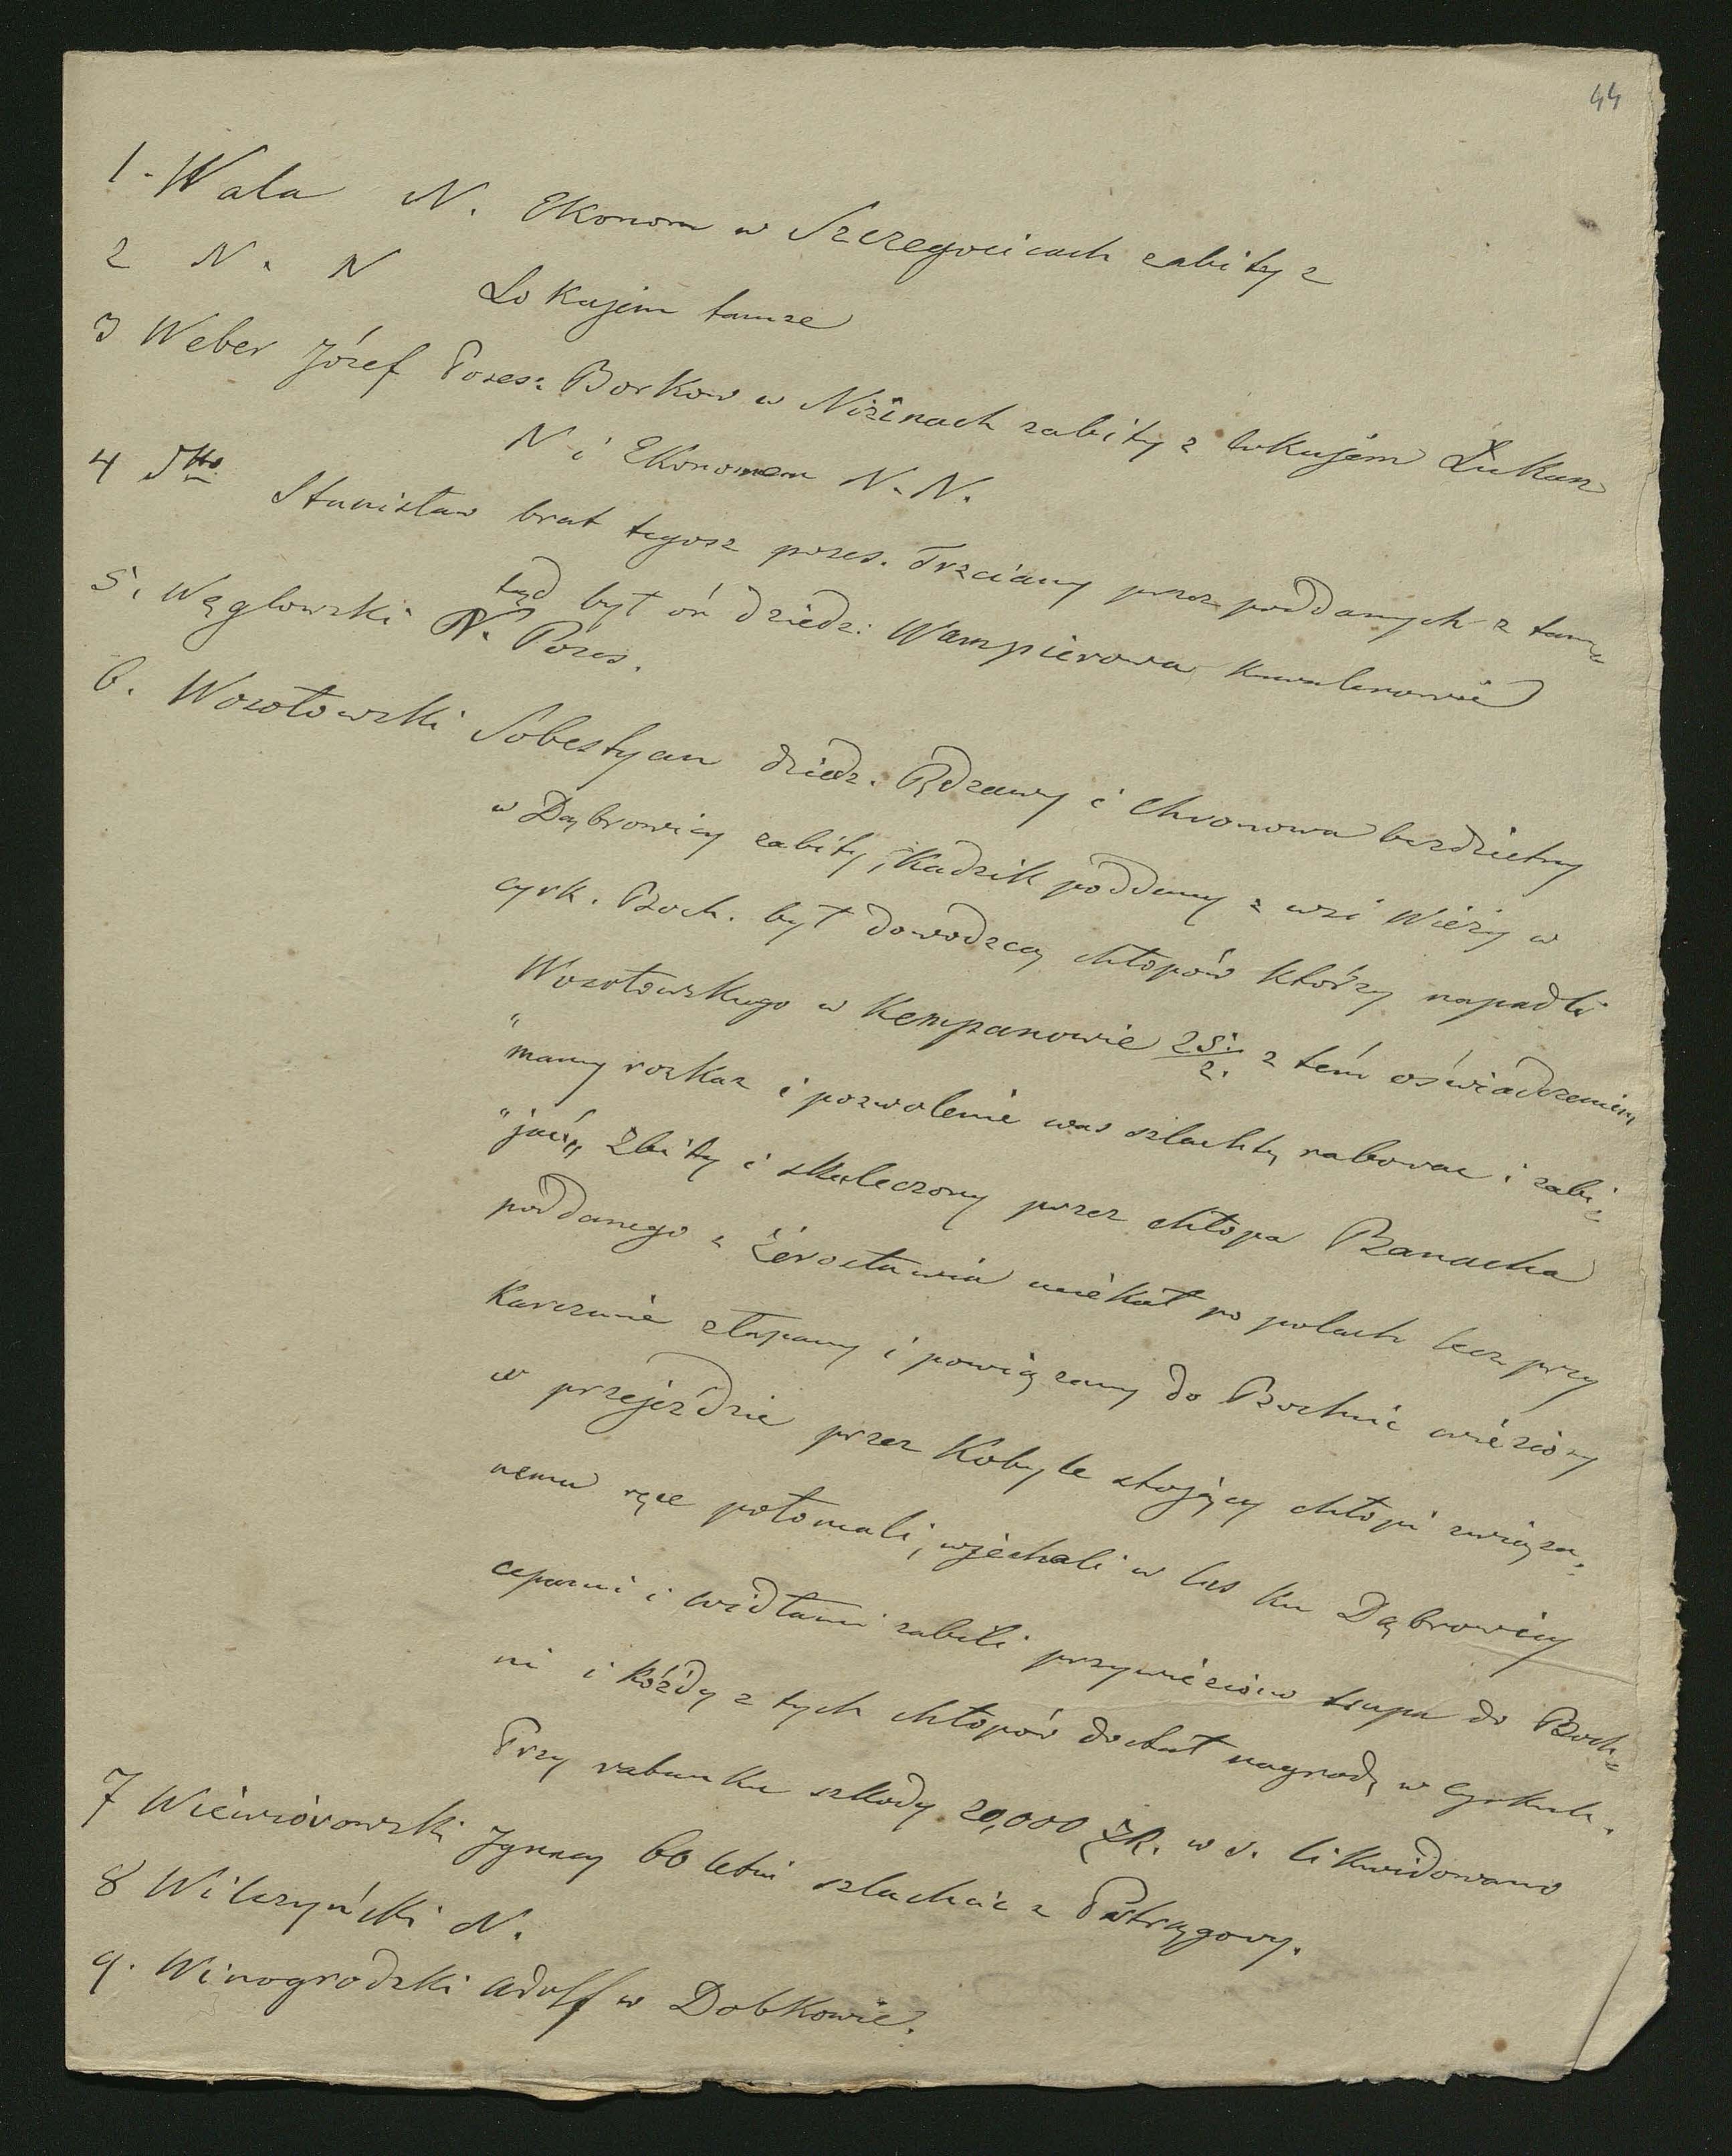 44
1. Wala N. Ekonom w Szczegocicach zabity z
2 N. N Lokajem tamze
3 Weber Józef Poses: Borkow w Nizinach zabity z lokajem Łukan
N i Ekonomem N. N.
4 dtto Stanisław brat tegosz poses. Trzciany przez poddanych z tam=
tąd był oń dziedz: Wampierowa kawalerowie
5. Węglowski N. Poses.
6. Wosołowski Sobestyan dziedz. Rdzawy i Chronowa bezdzietny
w Dąbrowicy zabity, Kadzik poddany z wsi Wieży w
cyrk. Boch. był dowodzcą chłopów którzy napadli
Wosołowskiego w Kempanowie 25/2. z tém oświadczeniem
"mamy rozkaz i pozwolenie was szlachtę rabowac i zabi=
"jać„ Zbity i skaleczony przez chłopa Banacha
poddanego z Żerosławia uciekał po polach lecz przy
Karczmie złapany i powiązany do Bochnie wieziony
w przejeździe przez Kobyle stojący chłopi związa=
nemu ręce połomali, wjechali w las ku Dąbrowicy
cepami i widłami zabili przywieziono trupa do Boch=
ni i kóżdy z tych chłopów dostał nagrodę w Cyrkule.
Przy rabunku szkody 20,000 ZR. w s. likwidowano
7 Wiewiórowski Ignacy 60 letni szlachcic z Pstrągowy.
8 Wilczyński N.
9. Winogrodzki Adolf w Dobkowie.